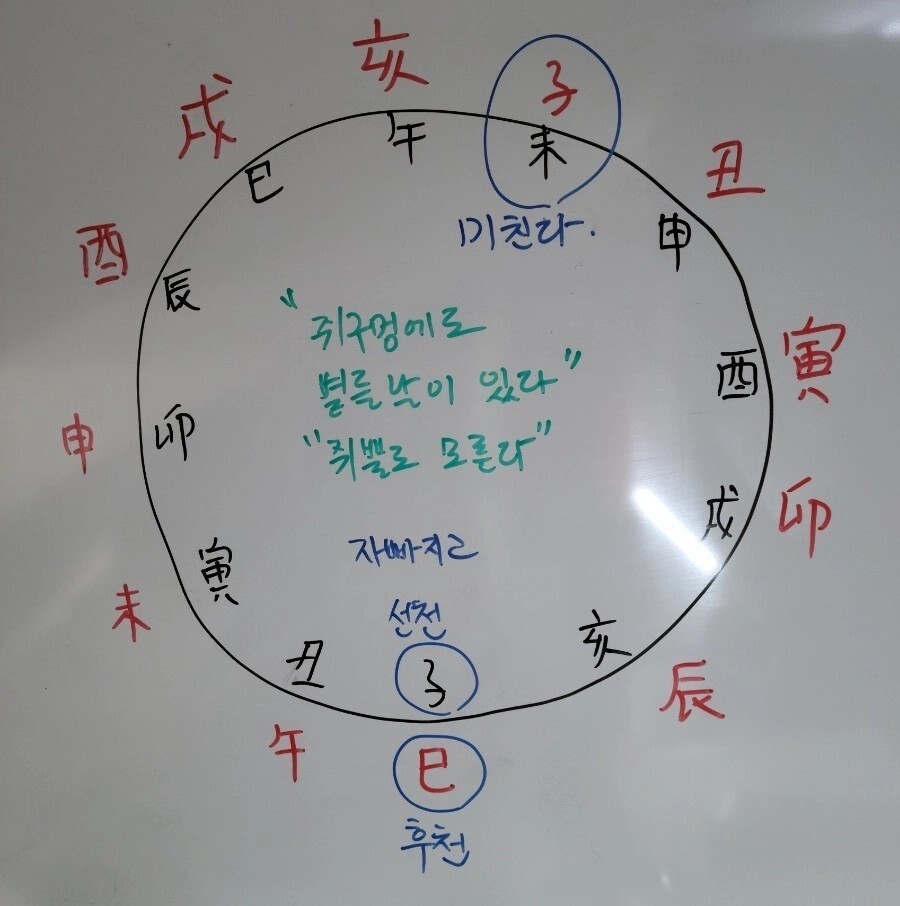 亥
子
戌
午
未
丑
巳
미친다.
申
酉
辰
"쥐구멍에도
寅
酉
볕들날이 있다"
申
卯
"쥐뿔도 모른다"
卯
戌
자빠지고
寅
未
선천
亥
丑
子
辰
午
巳
후천